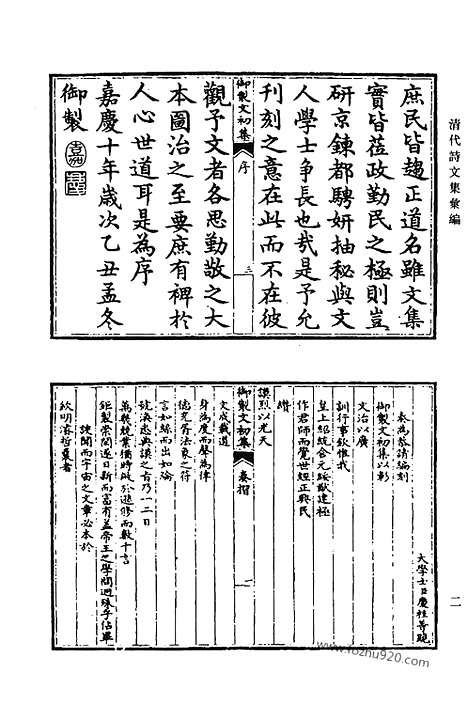 清代詩文集彙編
二
庶民皆趨正道名雖文集
實皆蒞政勤民之極則豈
研京鍊都騁妍抽秘與文
人學士爭長也哉是予允
刊刻之意在此而不在彼
御製文初集 序 三
觀予文者各思勤敬之大
本圖治之至要庶有裨於
人心世道耳是為序
嘉慶十年歲次乙丑孟冬
御製
大學士臣慶桂等跪
奏為恭請編刻
御製文初集以彰
文治以廣
訓行事欽惟我
皇上紹統合元綏猷建極
作君師而覺世經正興民
纘
謨烈以光天
御製文初集 奏摺 一
文成載道
身為度而聲為律
德充符法象之符
言如絲而出如綸
號渙悉典謨之旨乃一二日
萬幾兢業猶時敏於進修而數十言
鉅製崇閎遂日新而富有蓋帝王之學問迥殊乎佔畢
諛聞而宇宙之文章必本於
欽明濬哲曩者
www.fozhu920.com